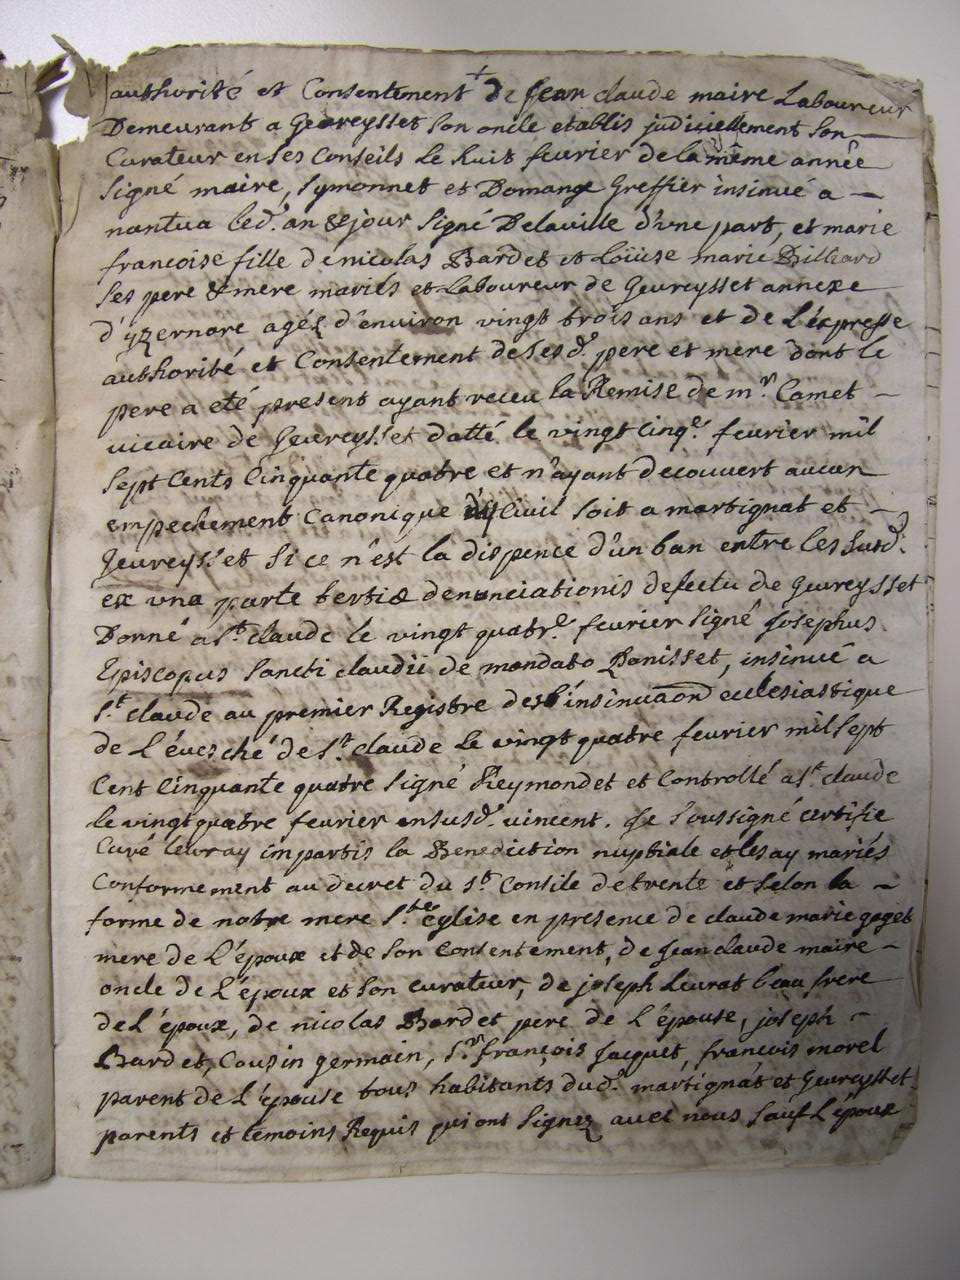 authorité et Consentement de Jean claude maire Laboureur
Demeurant a Gevreysset son oncle etablis judiciellement son
Curateur en ses Conseils le huit fevrier de la même année
signé maire, Symonnet et Domange Greffier insinué a
nantua led.t an & jour signé Delaville d'vne part, et marie
francoise fille de nicolas Bardet et Loüise marie Billiard
ses pere & mere mariés et Laboureur de Gevreysset annexe
d'yzernore agéz d'environ vingt trois ans et de l'expresse
authorité et Consentement de sesd.s pere et mere dont le
pere a eté present ayant receu la Remise de m.r Camet
vicaire de Gevreysset datté le vingt cinq.e fevrier mil
sept Cents Cinquante quatre et n'ayant decouvert aucun
empechement Canonique Civil soit a martignat et
Gevreysset si ce n'est la dispence d'un ban entre les susd.
ex vna parte tertiæ denunciationis defectu de Gevreysset
Donné a S.t claude le vingt quatr.e fevrier signé Josephus
Episcopus Sancti claudii de mandato Panisset, insinué a
S.t claude au premier Registre des l'insinuaon ecclesiastique
de L'évesché de S.t claude le vingt quatre fevrier mil sept
Cent Cinquante quatre signé Reymondet et Controllé a S.t claude
le vingt quatre fevrier ansusd. vincent. Je soussigné certifie
Curé leur ay impartis la Benediction nuptiale et les ay mariés
Conformement au decret du S.t Consile de trente et selon la
forme de notre mere S.te eglise en presence de claude marie goget
mere de L'époux et de son Consentement, de Jean claude maire
oncle de L'époux et son curateur, de joseph Levrat beau frere
de L'époux, de nicolas Bardet pere de L'épouse, joseph
Bardet, Cousin germain, S.r françois Jacquet, francois morel
parent de L'épouse tous habitants dud.t martignat et Gevreysset
parents et témoins Requis qui ont signez avec nous sauf L'époux